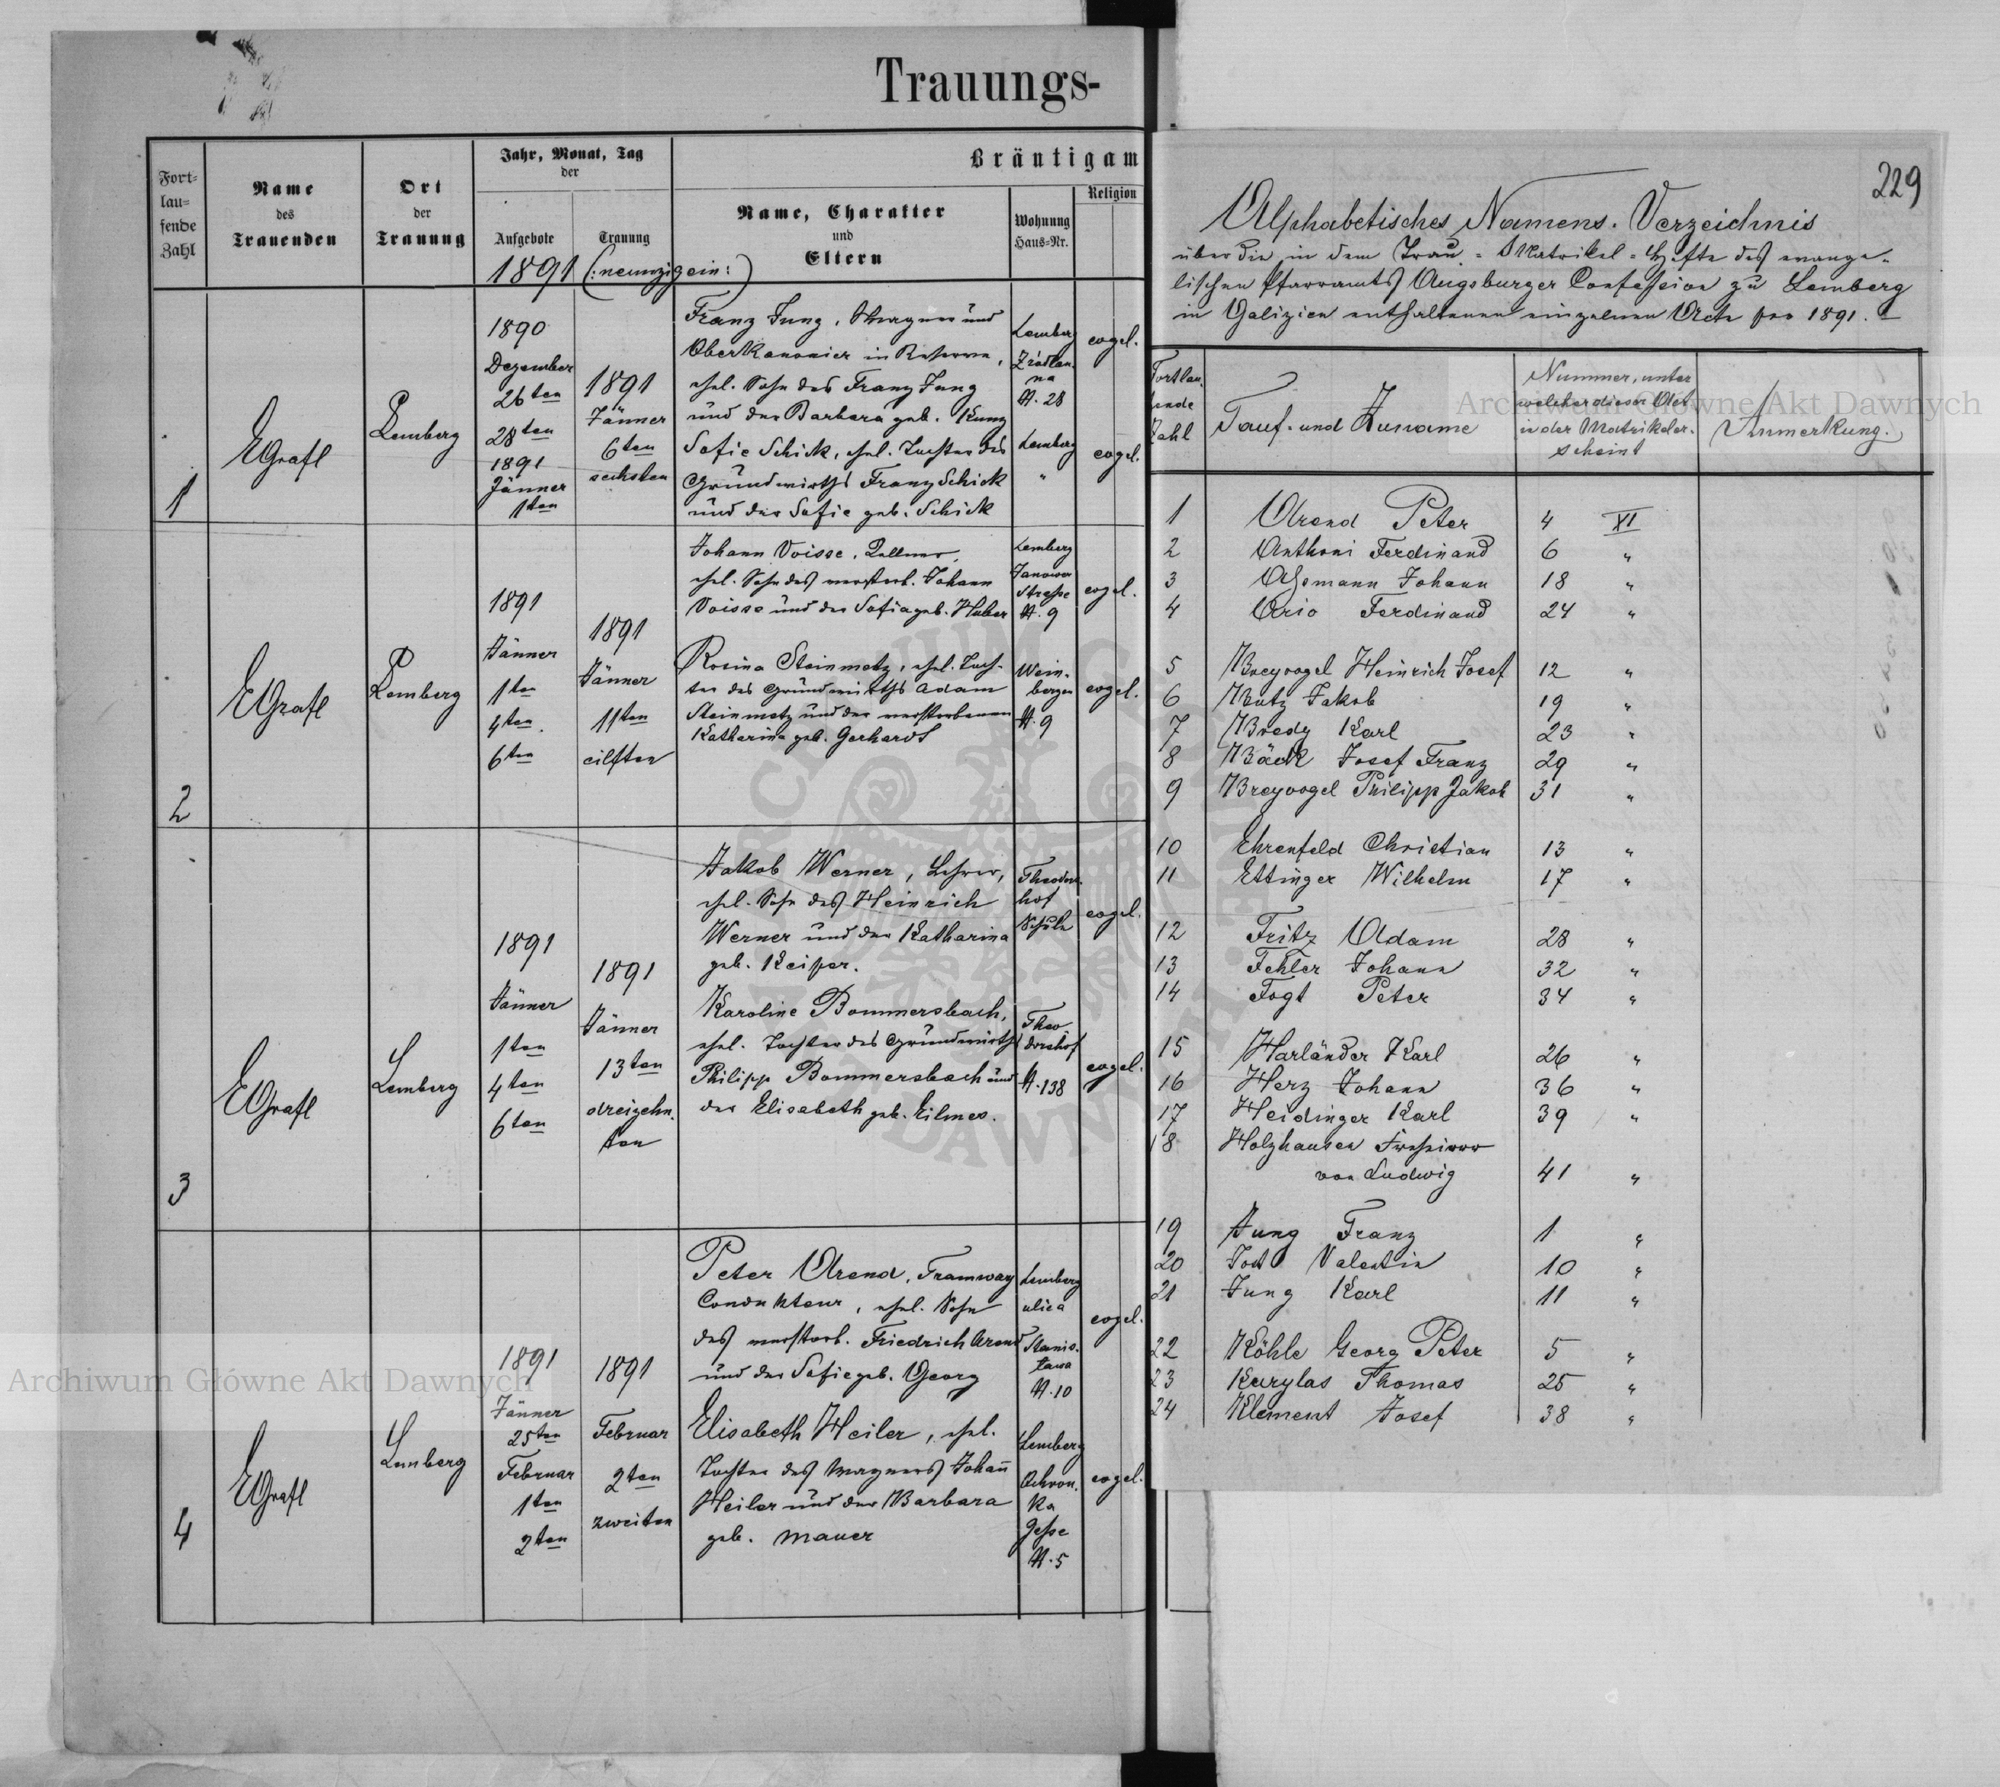 Trauungs-
Fort-
lau-
fende
Zahl
Name
des
Trauenden
Ort
der
Trauung
Jahr, Monat, Tag
der
Aufgebote
Trauung
Bräutigam
Name, Charakter
und
Eltern
Wohnung
Haus-Nr.
Religion
1891 (:neunzigein:)
1
EGrafl
Lemberg
1890
Dezember
26ten
28ten
1891
Jänner
1ten
1891
Jänner
6ten
sechsten
Franz Jung, Wagner und
Oberkanonier in Reserve,
ehel. Sohn des Franz Jung
und der Barbara geb. Kunz
Sofie Schick, ehel. Tochter des
Grundwirths Franz Schick
und der Sofie geb. Schick
Lemberg
Źródlan.
na
N. 28
Lemberg
"
evgel.
evgel.
2
EGrafl
Lemberg
1891
Jänner
1ten
4ten
6ten
1891
Jänner
11ten
eilften
Johann Voisse, Kellner,
ehel. Sohn des verstorb. Johann
Voisse und der Sofia geb. Huber
Rosina Steinmetz, ehel. Toch-
ter des Grundwirths Adam
Steinmetz und der verstorbenen
Katharina geb. Gerhardt
Lemberg
Janower
Strasse
N. 9
Wein-
bergen
N. 9
evgel.
evgel.
3
EGrafl
Lemberg
1891
Jänner
1ten
4ten
6ten
1891
Jänner
13ten
dreizehn.
ten
Jakob Werner, Lehrer,
ehel. Sohn des Heinrich
Werner und der Katharina
geb. Keiper.
Karoline Bommersbach,
ehel. Tochter des Grundwirths
Philipp Bommersbach und
der Elisabeth geb. Eilmes.
Theodors.
hof
Schule
Theo
dorshof
N. 138
evgel.
evgel.
4
EGrafl
Lemberg
1891
Jänner
25ten
Februar
1ten
2ten
1891
Februar
2ten
zweiten
Peter Arend, Tramway
Condukteur, ehel. Sohn
des verstorb. Friedrich Arend
und der Sofie geb. Georg
Elisabeth Heiler, ehel.
Tochter des Wagners Johann
Heiler und der Barbara
geb. Mauer
Lemberg
ulica
Stanis-
ława
N. 10
Lemberg
Ochron.
ka
Gasse
N. 5
evgel.
evgel.
229
Alphabetisches Namens-Verzeichnis
über die in dem Trau-Matrikel-Hefte des evange-
lischen Pfarramts Augsburger Confession zu Lemberg
in Galizien enthaltenen einzelnen Acte pro 1891.
Fortlau-
fende
Zahl
Tauf- und Zuname
Nummer, unter
welcher dieser Act
in der Matrikel er-
scheint
Anmerkung.
1 Arend Peter 4 XI
2 Anthoni Ferdinand 6 "
3 Assmann Johann 18 "
4 Ario Ferdinand 24 "
5 Breyvogel Heinrich Josef 12 "
6 Butz Jakob 19 "
7 Bredy Karl 23 "
8 Bäck Josef Franz 29 "
9 Breyvogel Philipp Jakob 31 "
10 Ehrenfeld Christian 13 "
11 Ettinger Wilhelm 17 "
12 Fritz Adam 28 "
13 Fehler Johann 32 "
14 Fogt Peter 34 "
15 Harländer Karl 26 "
16 Herz Johann 36 "
17 Heidinger Karl 39 "
18 Holzhausen Freiherr
von Ludwig 41 "
19 Jung Franz 1 "
20 Jost Valentin 10 "
21 Jung Karl 11 "
22 Köhle Georg Peter 5 "
23 Kurylas Thomas 25 "
24 Klement Josef 38 "
Archiwum Główne Akt Dawnych
Archiwum Główne Akt Dawnych